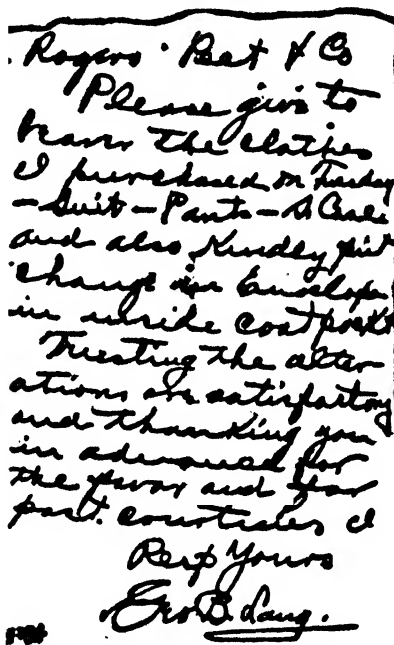 Rogers Peet & Co
Please give to
bearer the clothes
I purchased on Tuesday
- Suit - Pants - & Coat
and also Kindly put
change in Envelope
in inside coat pocket
Trusting the alter
ations are satisfactory
and thanking you
in advance for
the favor and for
past courtesies I
Resp Yours
Geo B. Lang.